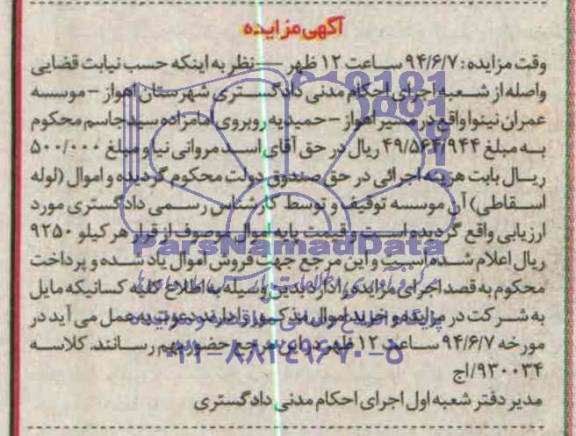 آگهی مزایده
وقت مزایده: ۹۴/۶/۷ ساعت ۱۲ ظهر — نظر به اینکه حسب نیابت قضایی
واصله از شعبه اجرای احکام مدنی دادگستری شهرستان اهواز - موسسه
عمران نینوا واقع در مسیر اهواز - حمیدیه روبروی امامزاده سیدجاسم محکوم
به مبلغ ۴۹/۵۶۴/۹۴۴ ریال در حق آقای اسد مروانی نیا و مبلغ ۵۰۰/۰۰۰
ریال بابت هزینه اجرائی در حق صندوق دولت محکوم گردیده و اموال (لوله
اسقاطی) آن موسسه توقیف و توسط کارشناس رسمی دادگستری مورد
ارزیابی واقع گردیده است و قیمت پایه اموال موصوف از قرار هر کیلو ۹۲۵۰
ریال اعلام شده است و این مرجع جهت فروش اموال یاد شده و پرداخت
محکوم به قصد اجرای مزایده را دارد بدین وسیله به اطلاع کلیه کسانیکه مایل
به شرکت در مزایده و خرید اموال مذکور را دارند دعوت به عمل می آید در
مورخه ۹۴/۶/۷ ساعت ۱۲ ظهر در این مرجع حضور بهم رسانند. کلاسه
۹۳۰۰۳۴/اج
مدیر دفتر شعبه اول اجرای احکام مدنی دادگستری
ParsNamadData
۰۲۱-۸۸۳۴۹۶۷۰-۵